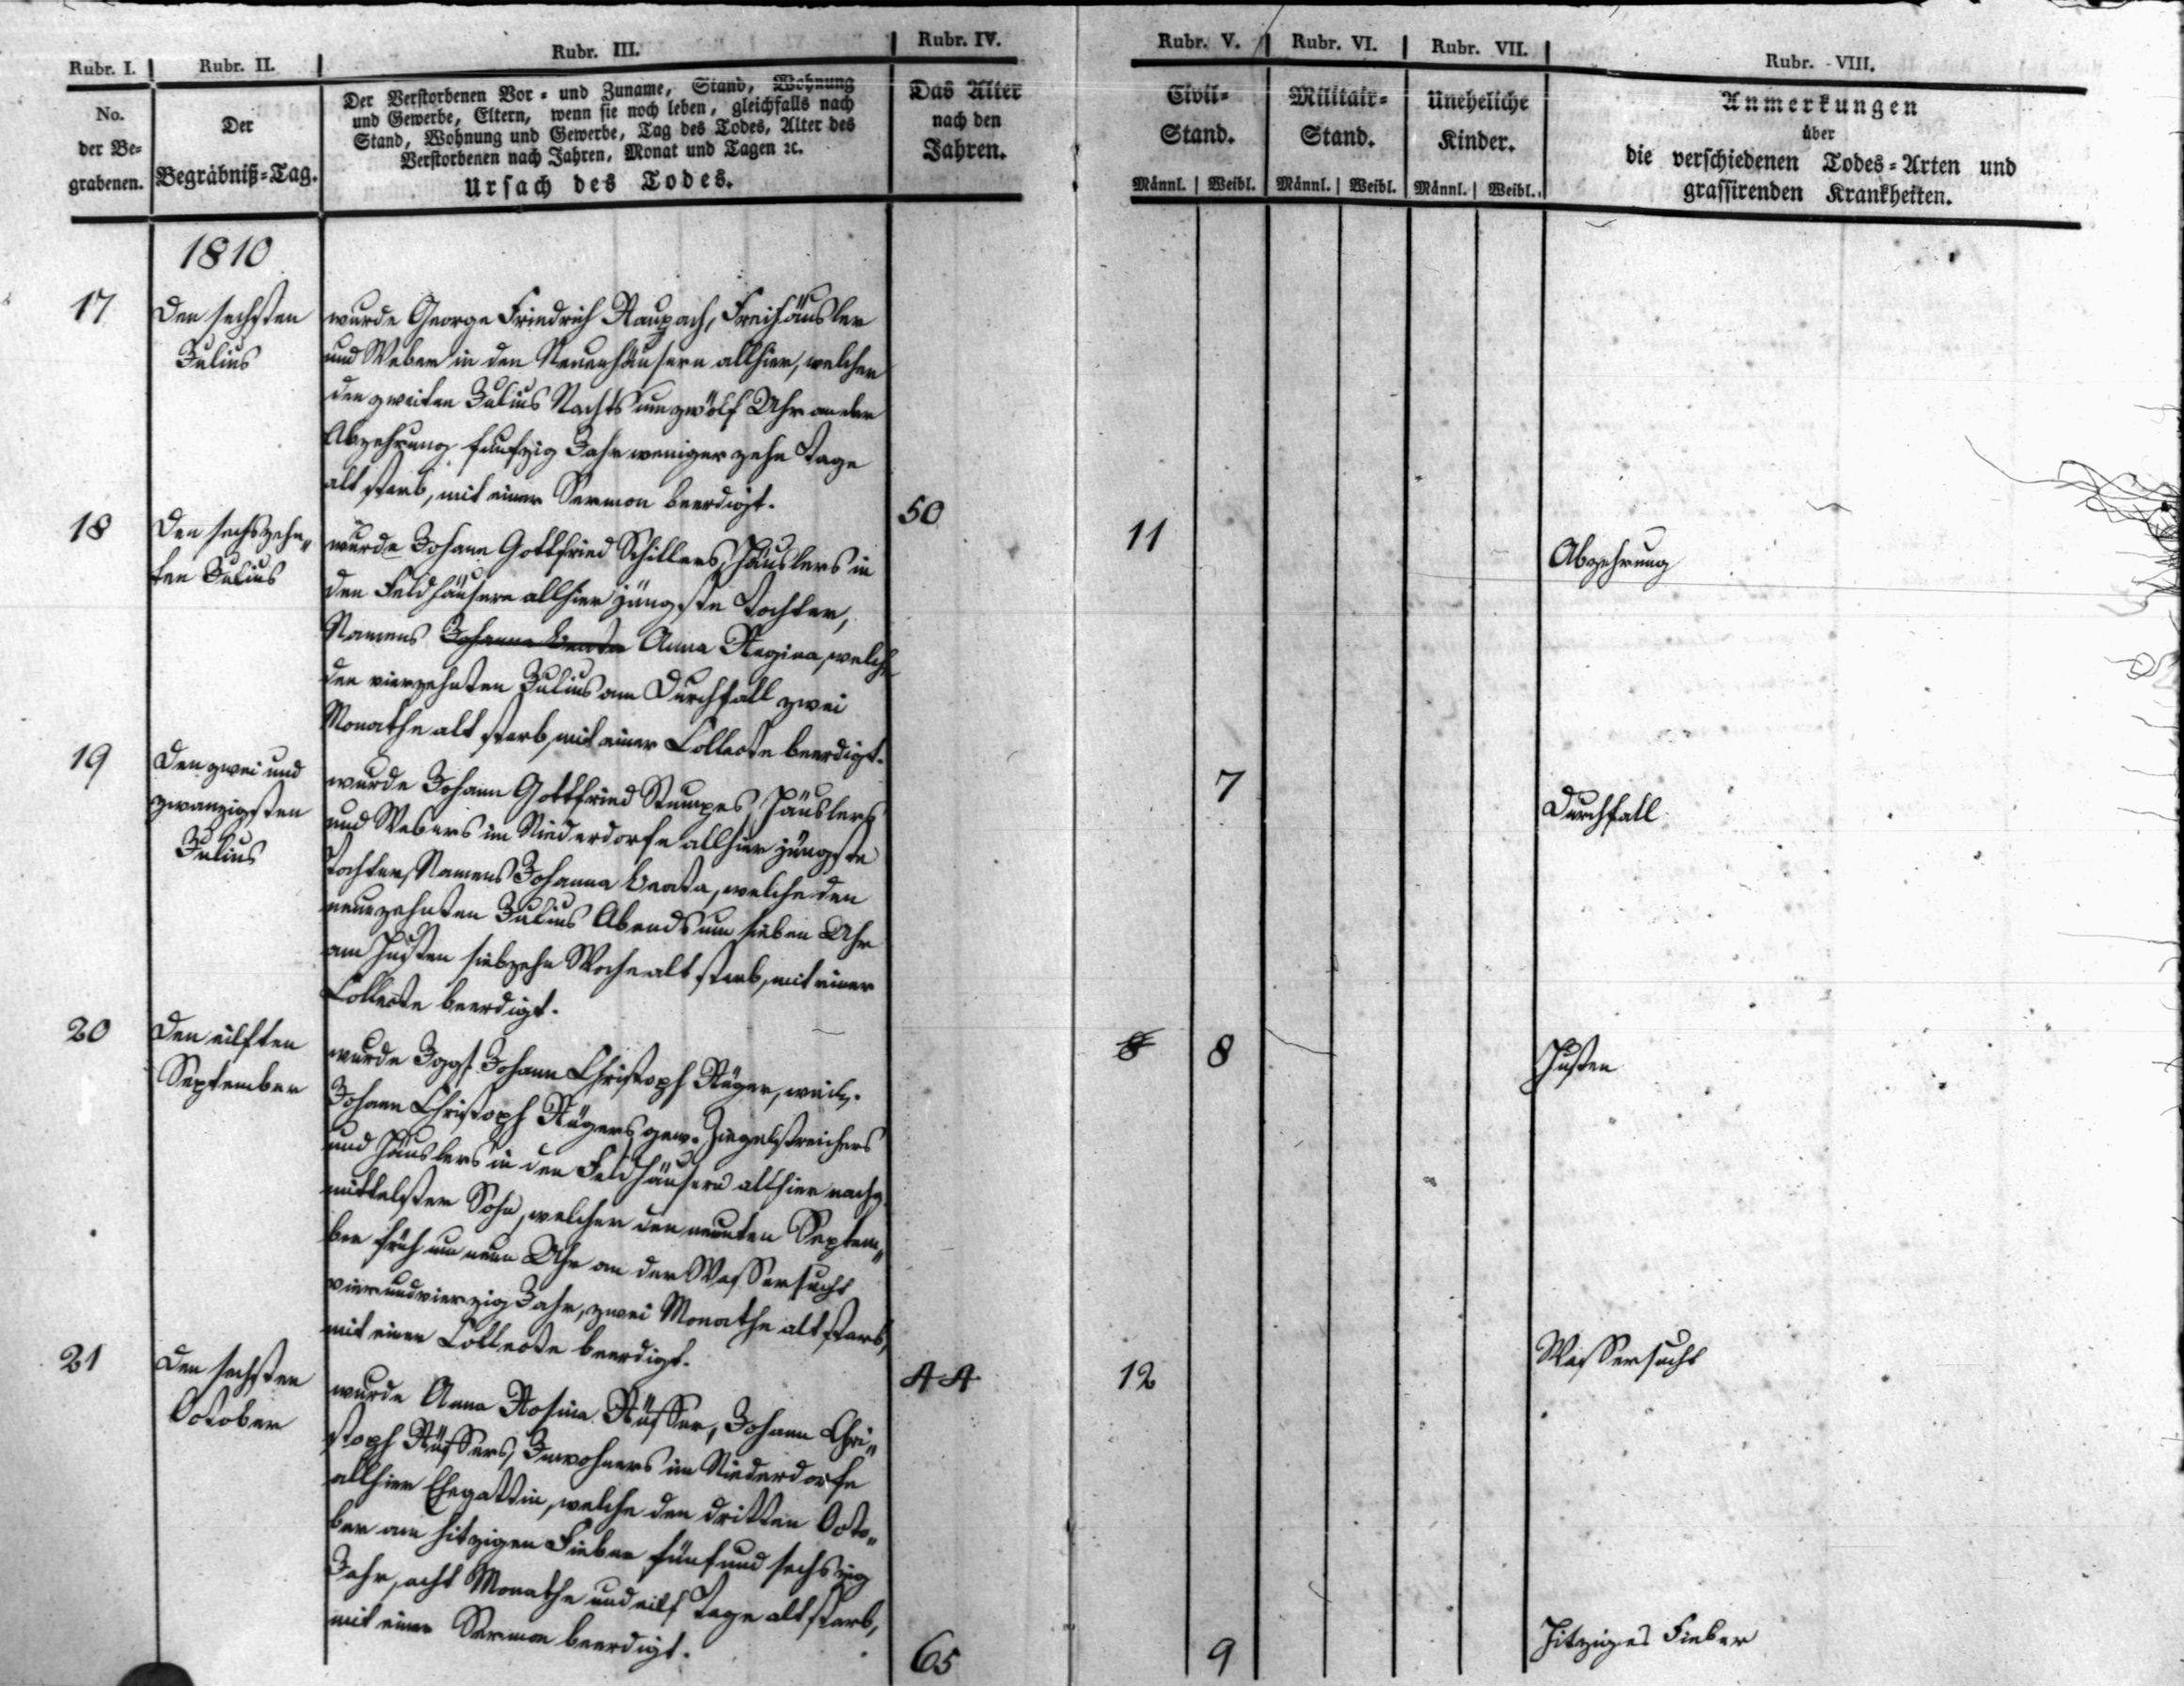 Rubr. I. Rubr. II. Rubr. III. Rubr. IV.
No.
der Be-
grabenen.
Der
Begräbniß-Tag.
Der Verstorbenen Vor- und Zuname, Stand, Wohnung
und Gewerbe, Eltern, wenn sie noch leben, gleichfalls nach
Stand, Wohnung und Gewerbe, Tag des Todes, Alter des
Verstorbenen nach Jahren, Monat und Tagen ꝛc.
Ursach des Todes.
Das Alter
nach den
Jahren.
1810
17
Den sechsten
Julius
wurde George Friedrich Raupach, Freihäusler
und Weber in den Neuenhäusern allhier, welcher
den zweiten Julius Nachts um zwölf Uhr an der
Abzehrung funfzig Jahr weniger zehn Tage
alt starb, mit einer Sermon beerdigt.
50
18
Den sechszehn„
ten Julius
wurde Johann Gottfried Schillers, Häuslers in
den Feldhäusern allhier jüngste Tochter,
Namens Johanna Beata Anna Regina, welche
den vierzehnten Julius am Durchfall zwei
Monathe alt starb, mit einer Collecte beerdigt.
19
Den zwei und
zwanzigsten
Julius
wurde Johann Gottfried Stumpes, Häuslers
und Webers im Niederdorfe allhier jüngste
Tochter, Namens Johanna Beata, welche den
neunzehnten Julius Abends um sieben Uhr
am Husten siebzehn Woche alt starb, mit einer
Collecte beerdigt.
20
Den eilften
September
wurde Iggs. Johann Christoph Röger, weil.
Johann Christoph Rögers gew. Ziegelstreichers
und Häuslers in den Feldhäusern allhier nachg.
mittelster Sohn, welcher den neunten Septem„
ber früh um neun Uhr an der Wassersucht
vierundvierzig Jahr, zwei Monathe alt starb,
mit einer Collecte beerdigt.
44
21
Den sechsten
October
wurde Anna Rosina Rüffer, Johann Chri„
stoph Rüffers, Inwohners im Niederdorfe
allhier Ehegattin, welche den dritten Octo„
ber am hitzigen Fieber fünf und sechszig
Jahr, acht Monathe und eilf Tage alt starb,
mit einer Sermon beerdigt.
65
Rubr. V. Rubr. VI. Rubr. VII. Rubr. VIII.
Civil-
Stand.
Männl. Weibl.
Militair-
Stand.
Männl. Weibl.
Uneheliche
Kinder.
Männl. Weibl.
Anmerkungen
über
die verschiedenen Todes-Arten und
grassirenden Krankheiten.
11 Abzehrung
7 Durchfall
8 8 Husten
12 Wassersucht
9 Hitziges Fieber